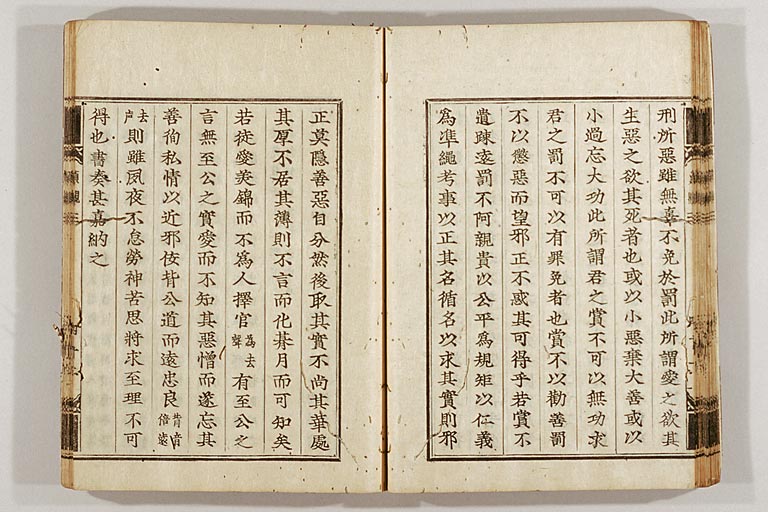 刑所惡雖無辜不免於罰此所謂愛之欲其
生惡之欲其死者也或以小惡棄大善或以
小過忘大功此所謂君之賞不可以無功求
君之罰不可以有罪免者也賞不以勸善罰
不以懲惡而望邪正不惑其可得乎若賞不
遺踈遠罰不阿親貴以公平為規矩以仁義
為準繩考事以正其名循名以求其實則邪
正莫隱善惡自分然後取其實不尚其華處
其厚不居其薄則不言而化朞月而可知矣
若徒愛美錦而不為人擇官為去聲有至公之
言無至公之實愛而不知其惡憎而遂忘其
善徇私情以近邪佞背公道而遠忠良背音倍遠
去声則雖夙夜不怠勞神苦思將求至理不可
得也書奏甚嘉納之